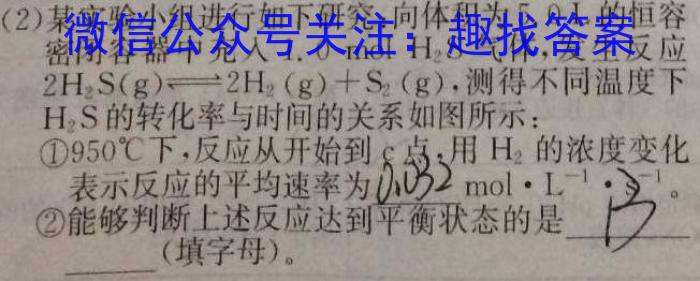 (2)某实验小组进行如下研究,向体积为5.0 L的恒容
微信公众号关注：趣找答案
密闭容器中充入 .0 mol H₂S 气体,发生反应
2H₂S(g)⇌2H₂(g)+S₂(g),测得不同温度下
H₂S的转化率与时间的关系如图所示:
①950℃下,反应从开始到c点,用 H₂ 的浓度变化
表示反应的平均速率为0.032 mol·L⁻¹·s⁻¹。
②能够判断上述反应达到平衡状态的是
(填字母)。